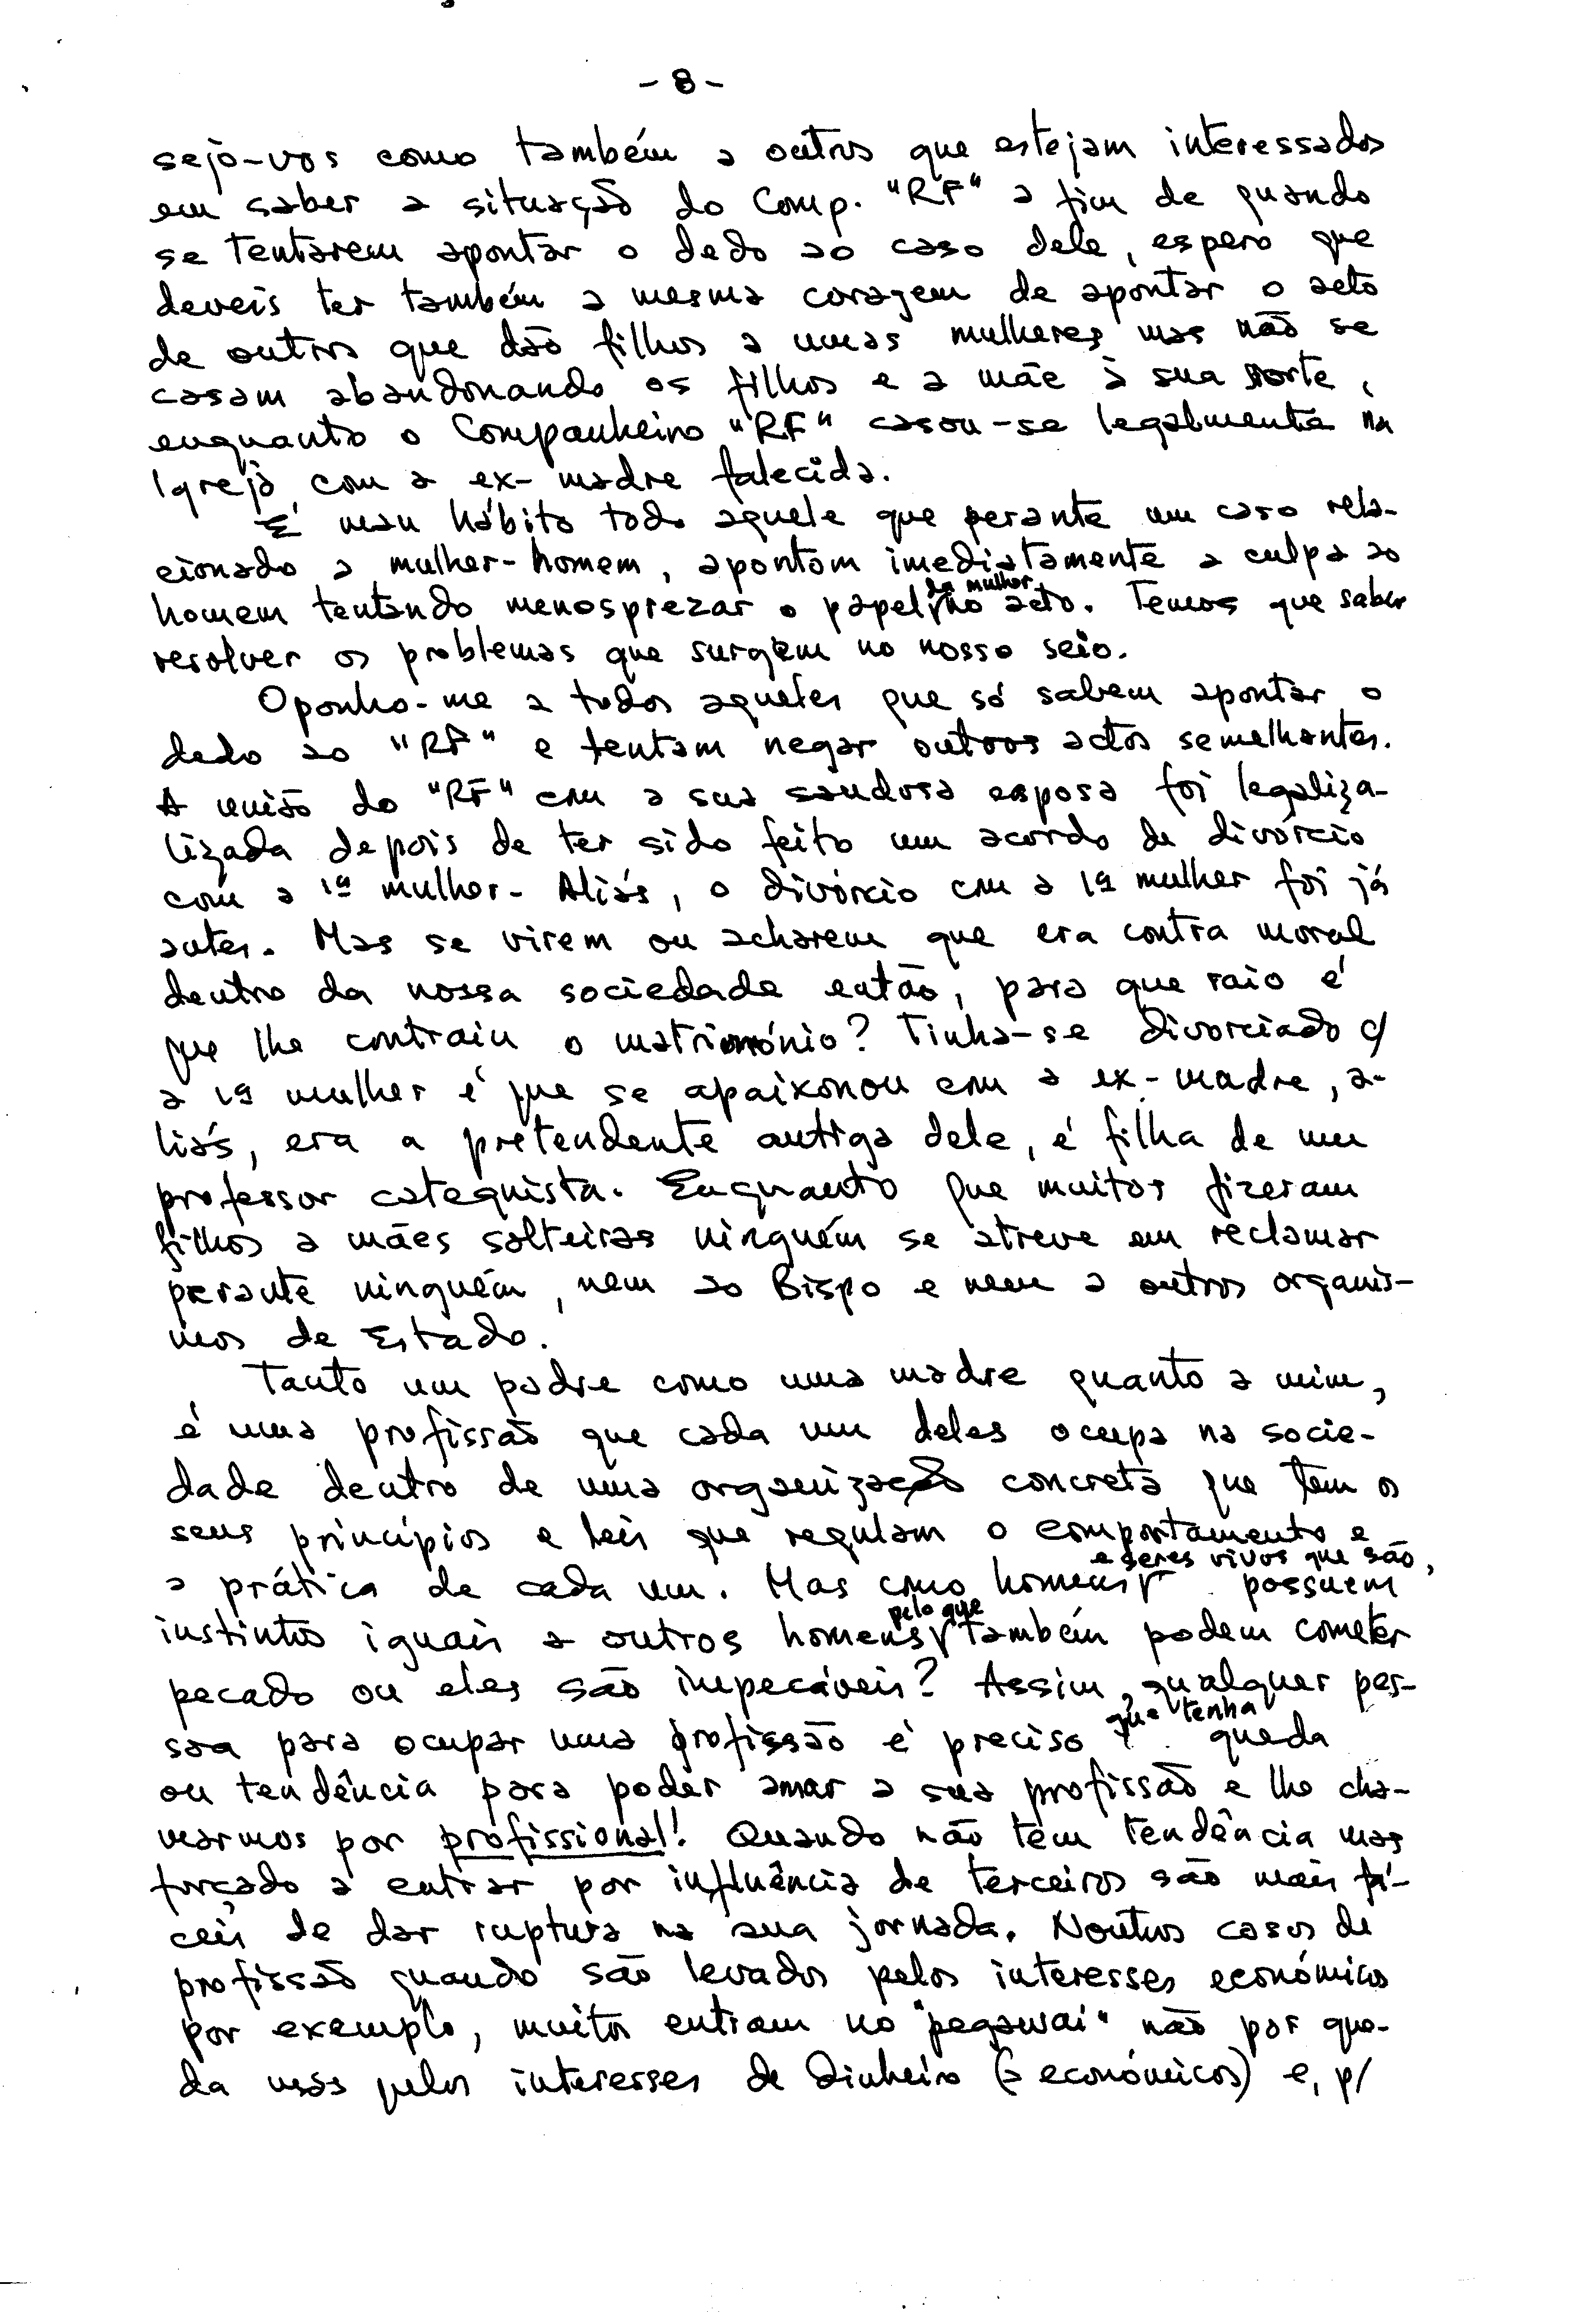 - 8 -
seja-vos como também a outros que estejam interessados
em saber a situação do Comp. "RF" a fim de quando
se tentarem apontar o dedo ao caso dele, espero que
deveis ter também a mesma coragem de apontar o acto
de outros que dão filhos a umas mulheres mas não se
casam abandonando os filhos e a mãe à sua sorte,
enquanto o Companheiro "RF" casou-se legalmente na
Igreja com a ex-madre falecida.
É mau hábito todo aquele que perante um caso rela-
cionado a mulher-homem, apontam imediatamente a culpa ao
homem tentando menosprezar o papel da mulher no acto. Temos que saber
resolver os problemas que surgem no nosso seio.
Oponho-me a todos aqueles que só sabem apontar o
dedo ao "RF" e tentam negar outros actos semelhantes.
A união do "RF" com a sua saudosa esposa foi legaliza-
lizada depois de ter sido feito um acordo de divórcio
com a 1ª mulher. Aliás, o divórcio com a 1ª mulher foi já
antes. Mas se virem ou acharem que era contra moral
dentro da nossa sociedade então, para que raio é
que lhe contraiu o matrimónio? Tinha-se divorciado c/
a 1ª mulher é que se apaixonou com a ex-madre, a-
liás, era a pretendente antiga dele, é filha de um
professor catequista. Enquanto que muitos fizeram
filhos a mães solteiras ninguém se atreve em reclamar
perante ninguém, nem ao Bispo e nem a outros organis-
mos de Estado.
Tanto um padre como uma madre quanto a mim,
é uma profissão que cada um deles ocupa na socie-
dade dentro de uma organização concreta que tem os
seus princípios e leis que regulam o comportamento e
a prática de cada um. Mas como homens e seres vivos que são, possuem
instintos iguais a outros homens pelo que também podem cometer
pecado ou eles são impecáveis? Assim, qualquer pes-
soa para ocupar uma profissão é preciso que tenha queda
ou tendência para poder amar a sua profissão e lhe cha-
marmos por profissional! Quando não têm tendência mas
forçado a entrar por influência de terceiros são mais fá-
ceis de dar ruptura na sua jornada. Noutros casos de
profissão quando são levados pelos interesses económicos
por exemplo, muitos entram no "pegawai" não por que-
da mas pelos interesses de dinheiro (= económicos) e, p/